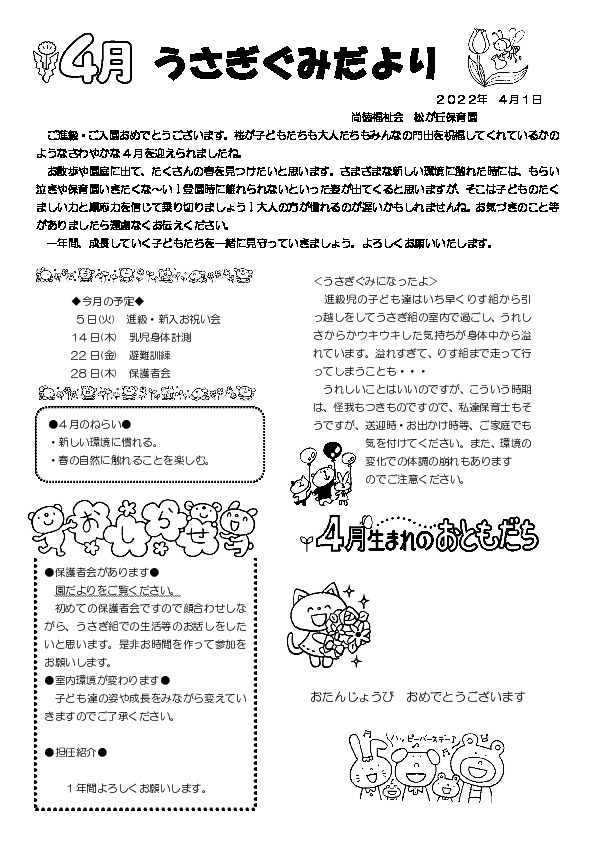 4月 うさぎぐみだより
2022年 4月1日
尚徳福祉会 松が丘保育園
ご進級・ご入園おめでとうございます。桜が子どもたちも大人たちもみんなの門出を祝福してくれているかの
ようなさわやかな4月を迎えられましたね。
お散歩や園庭に出て、たくさんの春を見つけたいと思います。さまざまな新しい環境に触れた時には、もらい
泣きや保育園いきたくな～い！登園時に離れられないといった姿が出てくると思いますが、そこは子どものたく
ましい力と順応力を信じて乗り切りましょう！大人の方が慣れるのが遅いかもしれませんね。お気づきのこと等
がありましたら遠慮なくお伝えください。
一年間、成長していく子どもたちを一緒に見守っていきましょう。よろしくお願いいたします。
◆今月の予定◆
5日(火) 進級・新入お祝い会
14日(木) 乳児身体計測
22日(金) 避難訓練
28日(木) 保護者会
●4月のねらい●
・新しい環境に慣れる。
・春の自然に触れることを楽しむ。
おしらせ
●保護者会があります●
園だよりをご覧ください。
初めての保護者会ですので顔合わせしな
がら、うさぎ組での生活等のお話しをした
いと思います。是非お時間を作って参加を
お願いします。
●室内環境が変わります●
子ども達の姿や成長をみながら変えてい
きますのでご了承ください。
●担任紹介●
1年間よろしくお願いします。
＜うさぎぐみになったよ＞
進級児の子ども達はいち早くりす組から引
っ越しをしてうさぎ組の室内で過ごし、うれし
さからかウキウキした気持ちが身体中から溢
れています。溢れすぎて、りす組まで走って行
ってしまうことも・・・
うれしいことはいいのですが、こういう時期
は、怪我もつきものですので、私達保育士もそ
うですが、送迎時・お出かけ時等、ご家庭でも
気を付けてください。また、環境の
変化での体調の崩れもあります
のでご注意ください。
4月生まれのおともだち
おたんじょうび おめでとうございます
ハッピーバースデー